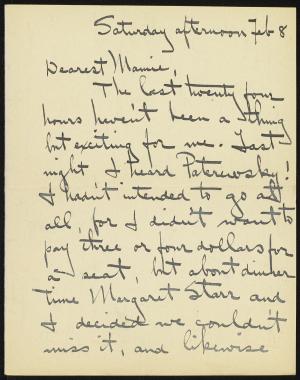 Saturday afternoon Feb 8
Dearest Mamie,
The last twenty four
hours haven't been a thing
but exciting for me. Last
night I heard Paterewsky!
I hadn't intended to go at
all, for I didn't want to
pay three or four dollars for
a seat, but about dinner
time Margaret Starr and
I decided we couldn't
miss it, and likewise